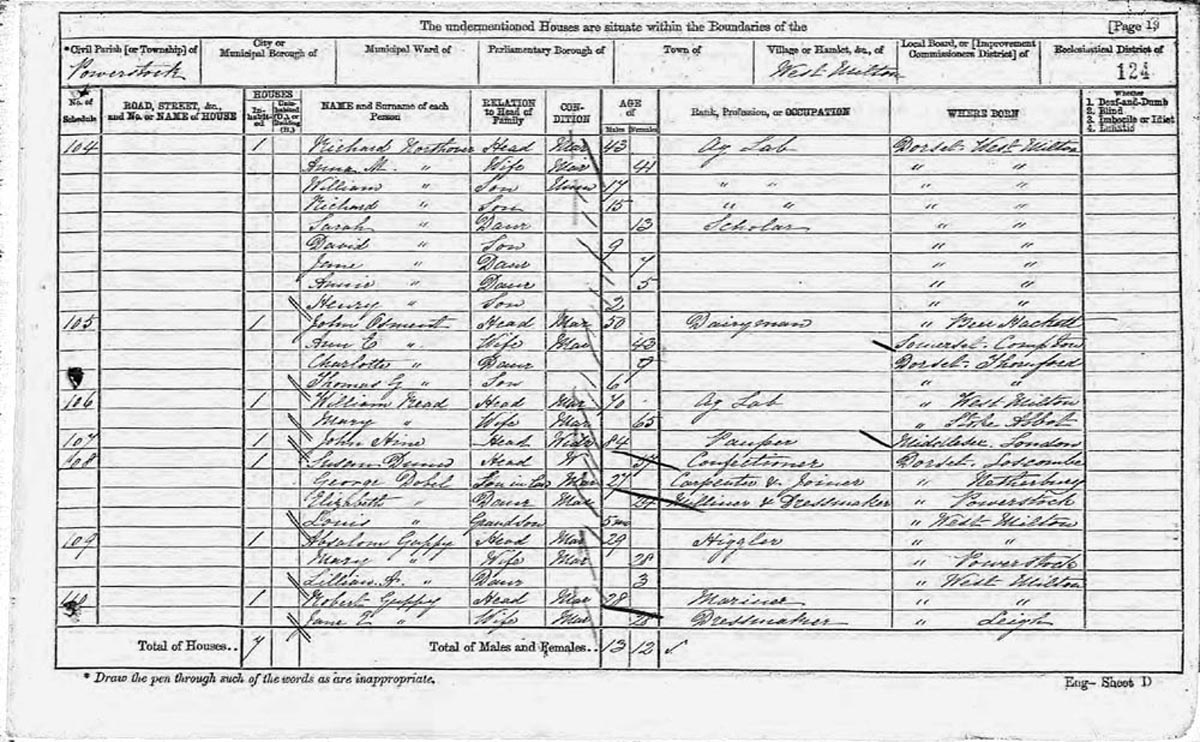 The undermentioned Houses are situate within the Boundaries of the [Page 19
*Civil Parish [or Township] of City or Municipal Borough of Municipal Ward of Parliamentary Borough of Town of Village or Hamlet, &c., of Local Board, or [Improvement Commissioners District] of Ecclesiastical District of
Powerstock West Milton 124
No. of Schedule ROAD, STREET, &c., and No. or NAME of HOUSE HOUSES Inhabited Uninhabited (U.), or Building (B.) NAME and Surname of each Person RELATION to Head of Family CONDITION AGE of Males Females Rank, Profession, or OCCUPATION WHERE BORN Whether 1. Deaf-and-Dumb 2. Blind 3. Imbecile or Idiot 4. Lunatic
104 1 Richard Northover Head Mar 43 Ag Lab Dorset West Milton
Anna M. " Wife Mar 41 " "
William " Son Unm 17 " " " "
Richard " Son 15 " " " "
Sarah " Daur 13 Scholar " "
David " Son 9 " "
Jane " Daur 7 " "
Annie " Daur 5 " "
Henry " Son 2 " "
105 1 John Osment Head Mar 50 Dairyman " Beer Hackett
Ann E " Wife Mar 43 Somerset Compton
Charlotte " Daur 9 Dorset Thornford
Thomas G " Son 6 " "
106 1 William Read Head Mar 70 Ag Lab " West Milton
Mary " Wife Mar 65 " Stoke Abbot
107 1 John Hine Head Widr 84 Pauper Middlesex London
108 1 Susan Head W 57 Confectioner Dorset Loscombe
George Dobel Son in Law Mar 27 Carpenter & Joiner " Netherbury
Elizabeth " Daur Mar 24 Milliner & Dressmaker " Powerstock
Louis " Grandson 5 mo " West Milton
109 1 Absalom Guppy Head Mar 29 Higgler " "
Mary " Wife Mar 28 " Powerstock
Lillian A. " Daur 3 " West Milton
110 1 Robert Guppy Head Mar 28 Mariner " "
Jane E " Wife Mar Dressmaker " Leigh
Total of Houses.. 7 Total of Males and Females.. 13 12
* Draw the pen through such of the words as are inappropriate. Eng- Sheet D